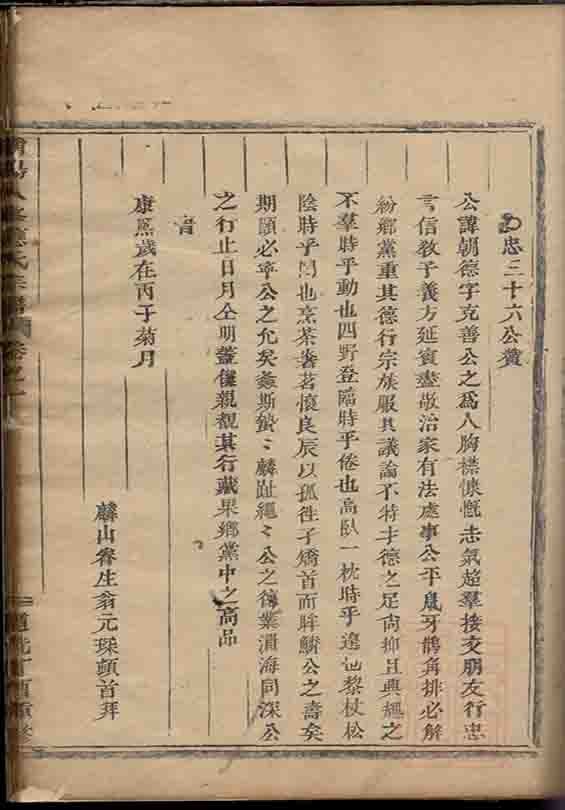 忠三十六公贊
公諱朝德字克善公之為人胸襟慷慨志氣超羣接交朋友行忠
言信教子義方延賓盡敬治家有法處事公平鼠牙鵲角排必解
紛鄉黨重其德行宗族服其議論不特才德之足尚抑且典之
不羣時乎動也四野登臨時乎倦也高臥一枕時乎遠也黎杖松
陰時乎閒也烹茶煮茗懷良辰以孤徃子矯首而眸觴公之壽矣
期頤必寧公之允矣螽斯蟄〻麟趾繩〻公之德業瀆海同深公
之行止日月仝明蓋僕親覩其行藏果鄉黨中之高品
康熙歲在丙子菊月
麟山眷生翁元琛頓首拜
氏宗譜 卷之一
道光丁酉重修